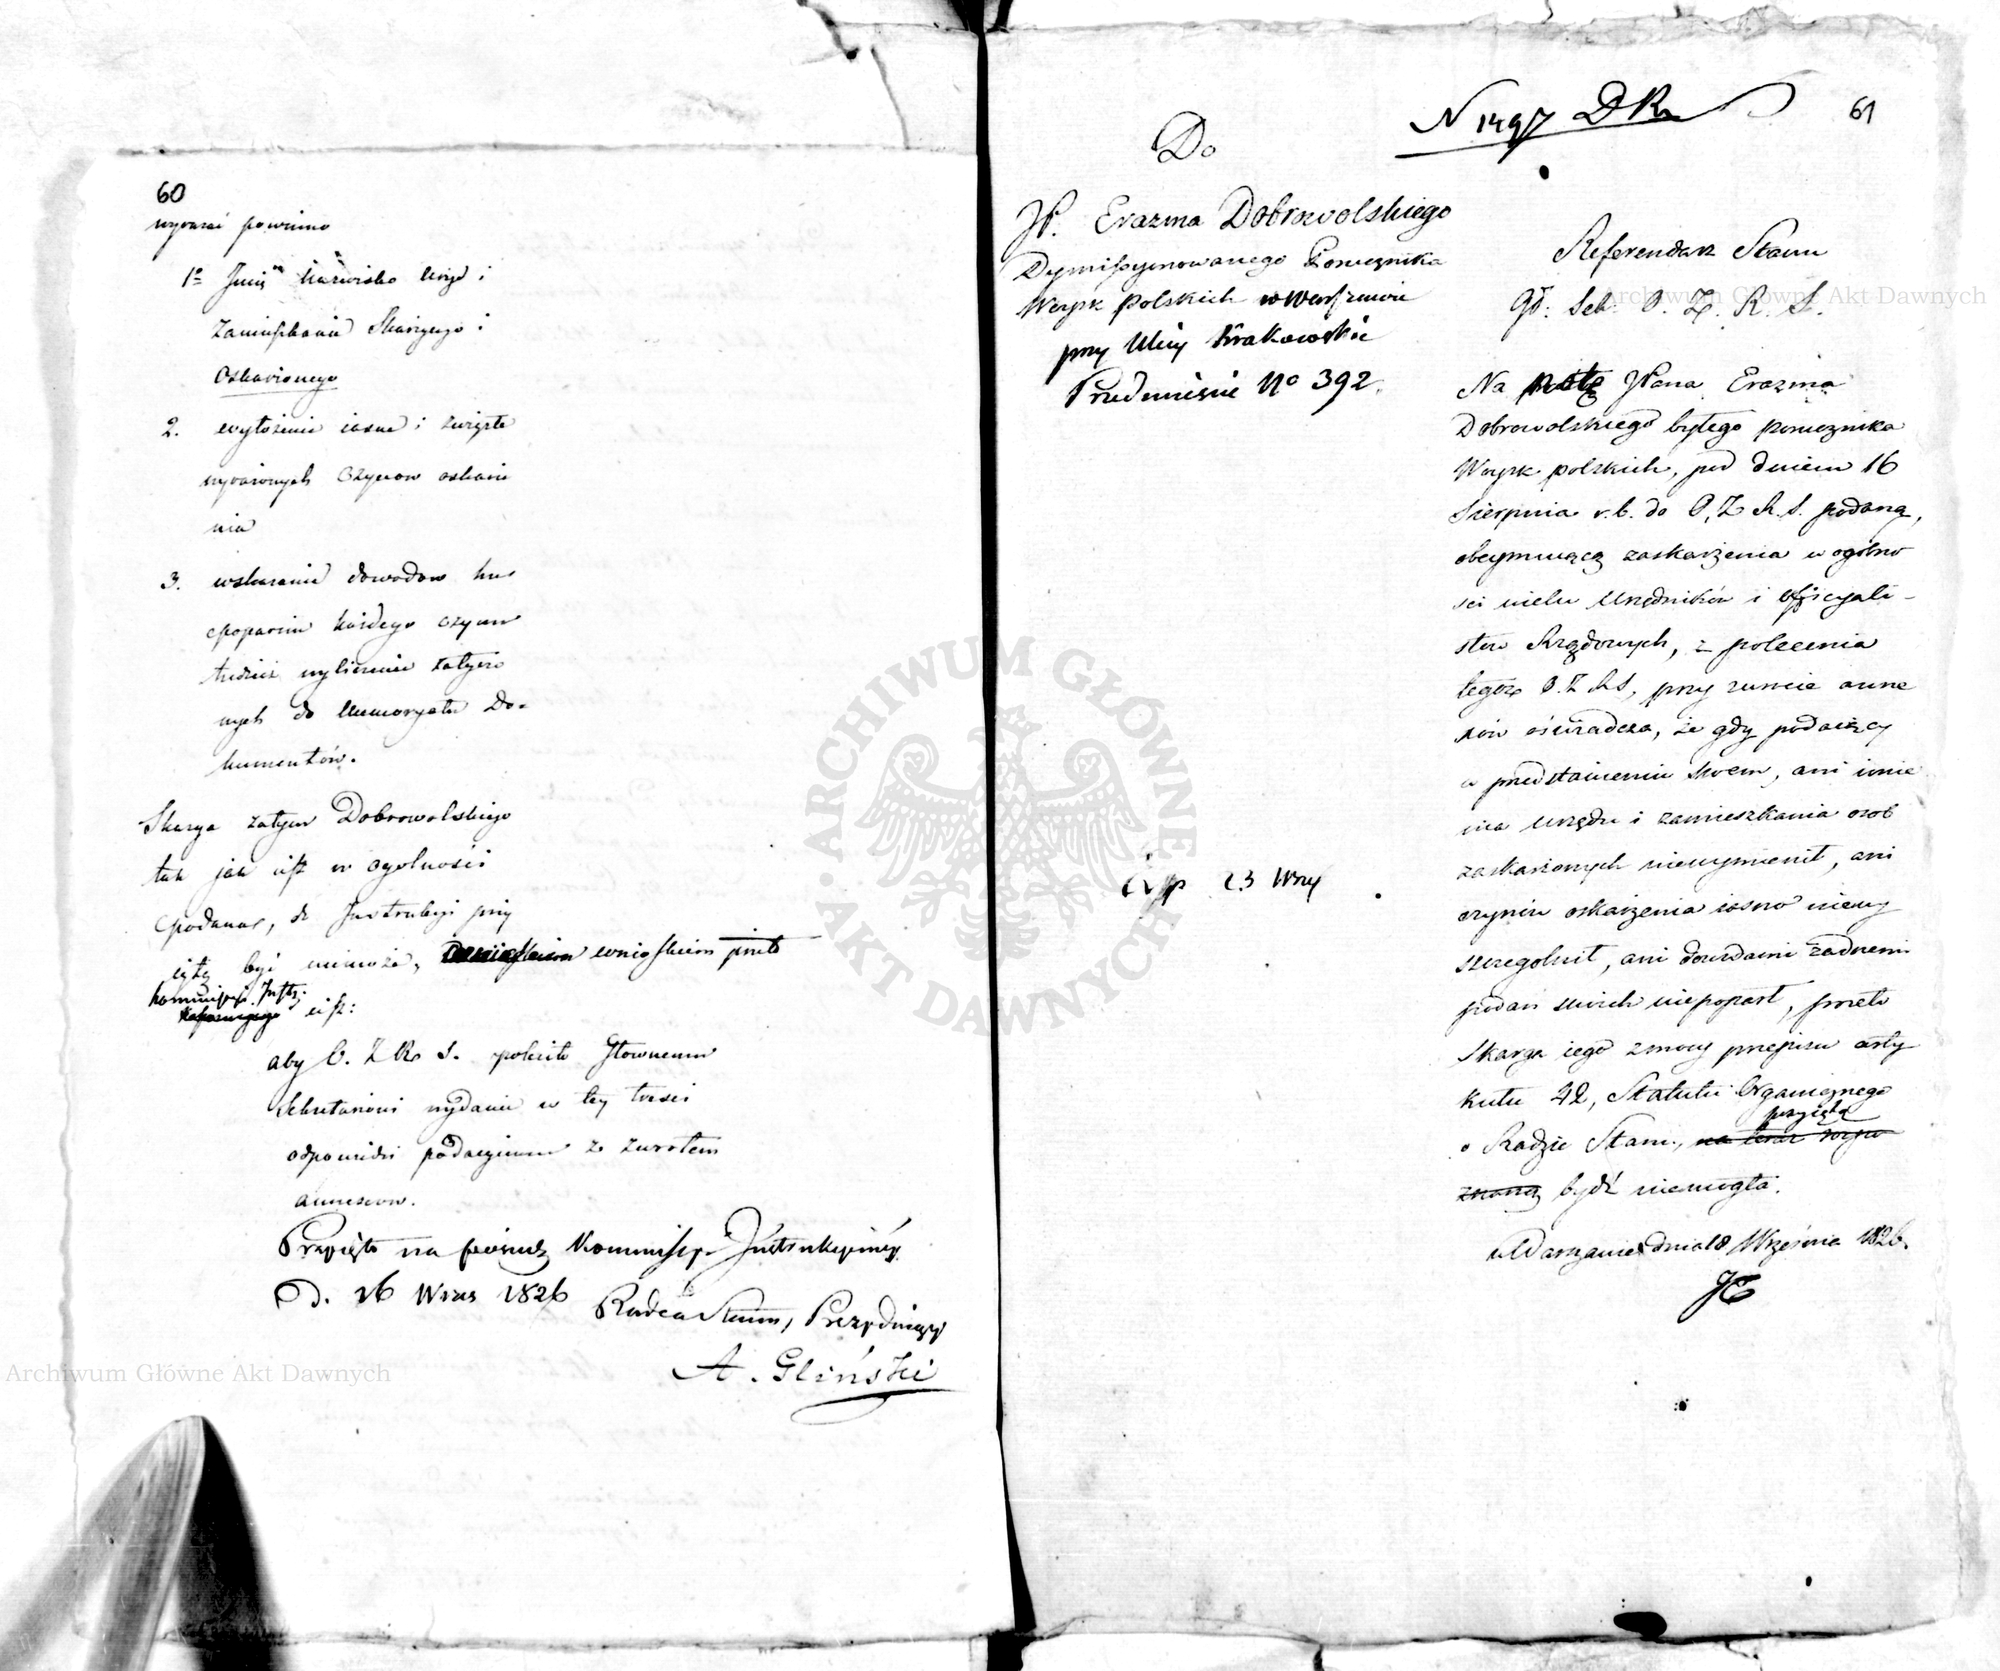 60
wyrazać powinno
1º Imię Nazwisko urząd i
zamięszkanie Skarżącego i
Oskarżonego
2. wyłożenie iasne i zwięzłe
wyrażonych Czynow oskarże
nia
3. wskazanie dowodow ku
poparciu każdego czynu
tudzież wyliczenie załączo
nych do Memoryału Do-
kumentów.
Skarga zatym Dobrowolskiego
tak jak iest w ogolności
podana, do Instrukcyi przy
iętą być niemoże, wnioskiem przeto
Kommissyi Instr:
iest:
aby O. Z R. S. poleciło Głownemu
Sekretarzowi wydanie w tey tresci
odpowiedzi podaiącemu ze zwrotem
annexow.
Przyięto na posiedz Kommissyi Instrukcyiney
D. 16 Wrześ 1826
Radca Stanu, Prezyduiący
A. Gliński
N 1497 DR
61
Do
JP. Erazma Dobrowolskiego
Dymissyonowanego Porucznika
Woysk Polskich w Warszawie
przy Ulicy Krakowskie
Przedmieście Nº 392.
Exp 23 Wrz
Referendarz Stanu
Gł: Sek. O. Z. R. S.
Na JPana Erazma
Dobrowolskiego byłego porucznika
Woysk polskich, pod dniem 16
Sierpnia r.b. do O. Z. R. S. podaną,
obeymuiącą zaskarżenia w ogólno
sci wielu Urzędników i officyali-
stow Rządowych, z polecenia
tegoż O. Z R S, przy zwrocie anne
xów oświadcza, że gdy podaiący
w przedstawieniu swoem, ani imie
nia urzędu i zamieszkania osob
zaskarżonych niewymienił, ani
czynów oskarżenia iasno niewy
szczegolnił, ani dowodami żadnemi
podań swoich niepoparł, przeto
Skarga iego z mocy przepisu arty
kułu 42, Statutu Organicznego
przyiętą
o Radzie Stanu, na teraz rozpo
znaną bydź niemogła.
w Warszawie dnia 18 Września 1826.